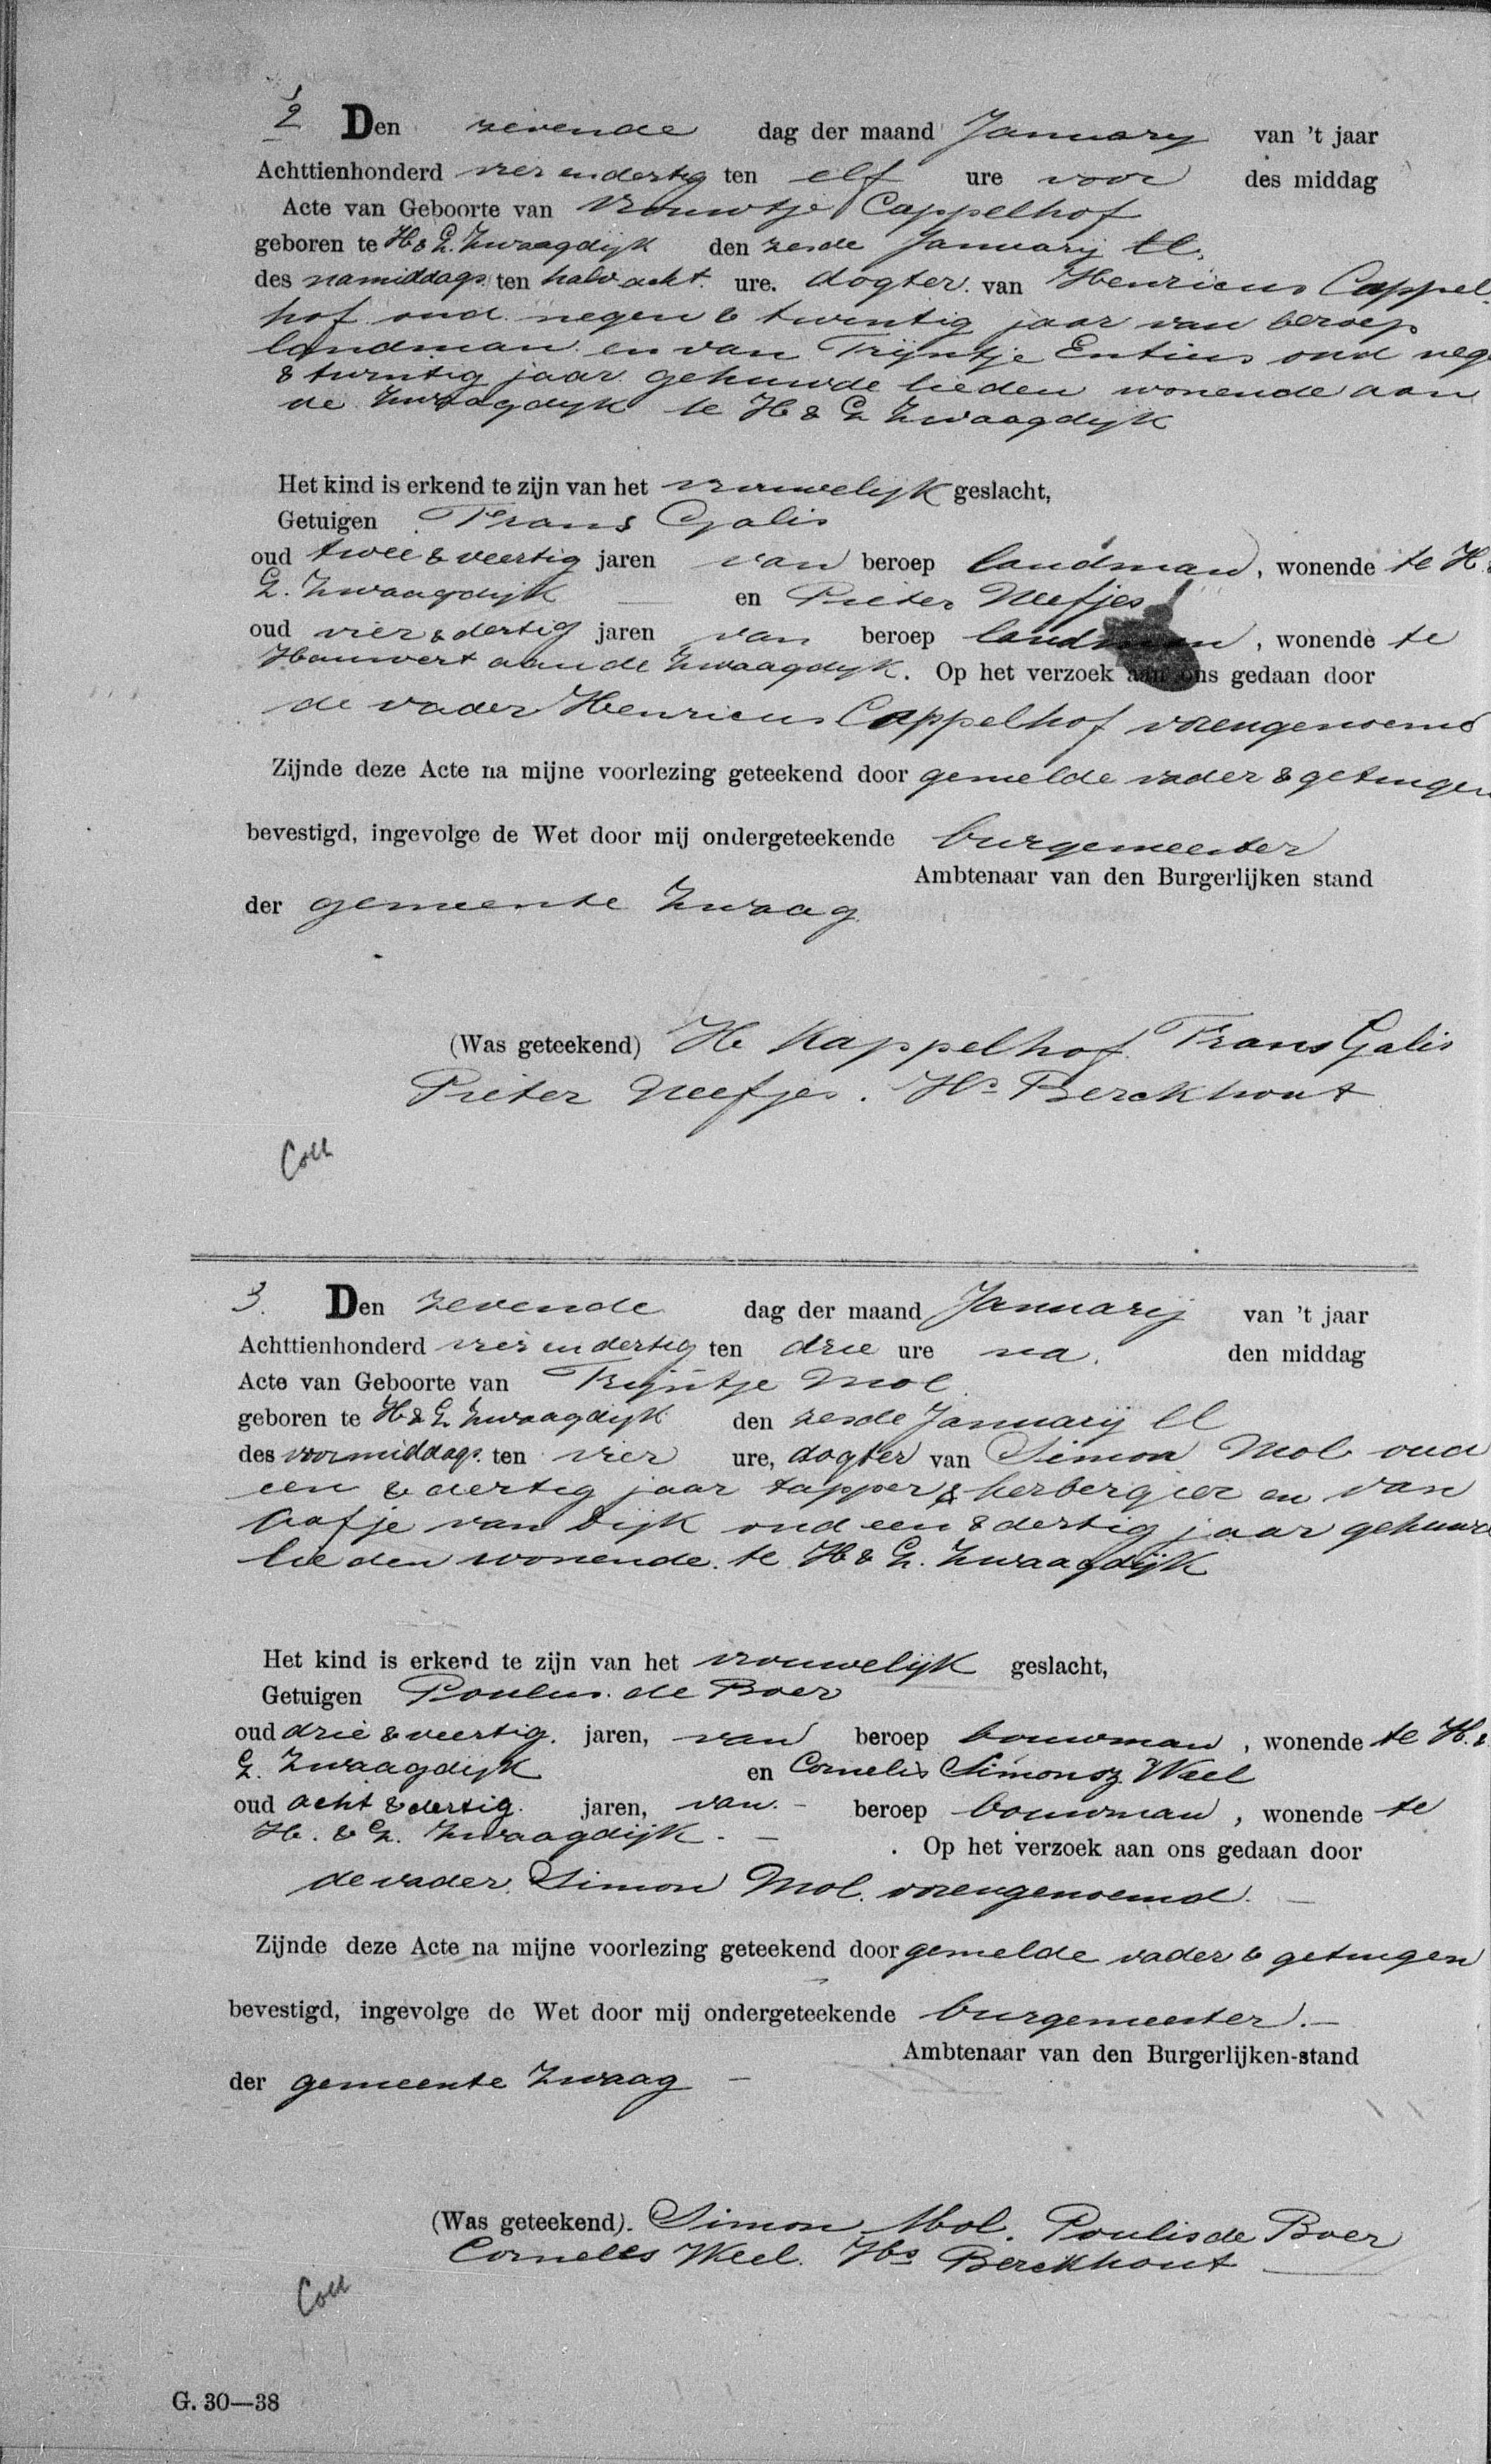 2 Den zevende dag der maand January van 't jaar
Achttienhonderd vier en dertig ten elf ure voor des middag
Acte van Geboorte van Vrouwtje Cappelhof
geboren te H & G. Zwaagdijk den zesde Januarij ll.
des namiddags ten half acht ure. dogter van Henricus Cappel-
hof oud negen & twintig jaar van beroep
landman en van Trijntje Entius oud neg
& twintig jaar gehuwde lieden wonende aan
de Zwaagdyk te H & G Zwaagdyk
Het kind is erkend te zijn van het vrouwelijk geslacht,
Getuigen Frans Galis
oud twee & veertig jaren van beroep landman, wonende te H. &
G. Zwaagdijk en Pieter Neefjes
oud vier & dertig jaren van beroep landman, wonende te
Hauwert aan de Zwaagdyk. Op het verzoek aan ons gedaan door
de vader Henricus Cappelhof vorengenoemd
Zijnde deze Acte na mijne voorlezing geteekend door gemelde vader & getuigen
bevestigd, ingevolge de Wet door mij ondergeteekende burgemeester
Ambtenaar van den Burgerlijken stand
der gemeente Zwaag
(Was geteekend) H Kappelhof. Frans Galis
Pieter Neefjes. Hs Berckhout
Coll
3. Den zevende dag der maand Januarij van 't jaar
Achttienhonderd vier en dertig ten drie ure na. den middag
Acte van Geboorte van Trijntje Mol
geboren te H & G Zwaagdijk den zesde Januarij ll
des voormiddags ten vier ure, dogter van Simon Mol oud
een & dertig jaar tapper & herbergier en van
Aafje van Dijk oud een & dertig jaar gehuwde
lieden wonende te H & G. Zwaagdijk
Het kind is erkend te zijn van het vrouwelijk geslacht,
Getuigen Poulus de Boer
oud drie & veertig. jaren, van beroep bouwman, wonende te H. &
G. Zwaagdijk en Cornelis Simonsz Weel
oud acht & dertig. jaren, van - beroep bouwman, wonende te
H. & G. Zwaagdijk. - . Op het verzoek aan ons gedaan door
de vader Simon Mol. vorengenoemd. -
Zijnde deze Acte na mijne voorlezing geteekend door gemelde vader & getuigen
bevestigd, ingevolge de Wet door mij ondergeteekende burgemeester. -
Ambtenaar van den Burgerlijken-stand
der gemeente Zwaag -
(Was geteekend). Simon Mol. Poulis de Boer
Cornelis Weel. Hs Berckhout
Coll
G. 30—38